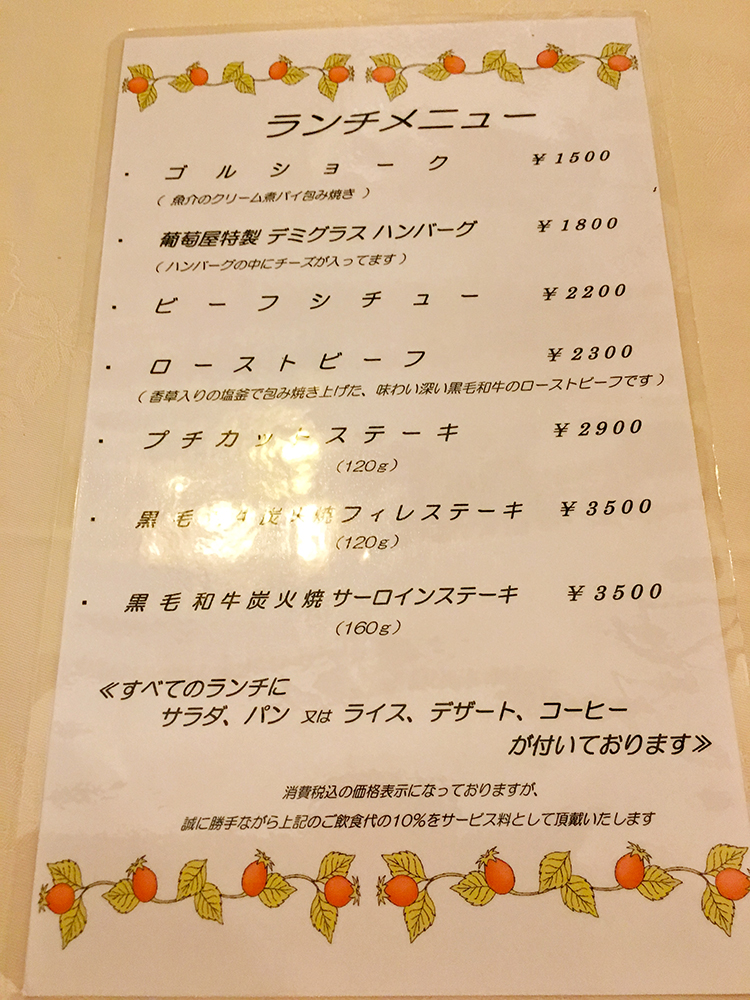 ランチメニュー
・ ゴルショーク ￥1500
( 魚介のクリーム煮パイ包み焼き )
・ 葡萄屋特製 デミグラス ハンバーグ ￥1800
( ハンバーグの中にチーズが入ってます )
・ ビーフシチュー ￥2200
・ ローストビーフ ￥2300
( 香草入りの塩釜で包み焼き上げた、味わい深い黒毛和牛のローストビーフです )
・ プチカットステーキ ￥2900
(120g)
・ 黒毛和牛炭火焼フィレステーキ ￥3500
(120g)
・ 黒毛和牛炭火焼 サーロインステーキ ￥3500
(160g)
≪すべてのランチに
サラダ、パン 又は ライス、デザート、コーヒー
が付いております≫
消費税込の価格表示になっておりますが、
誠に勝手ながら上記のご飲食代の10%をサービス料として頂戴いたします